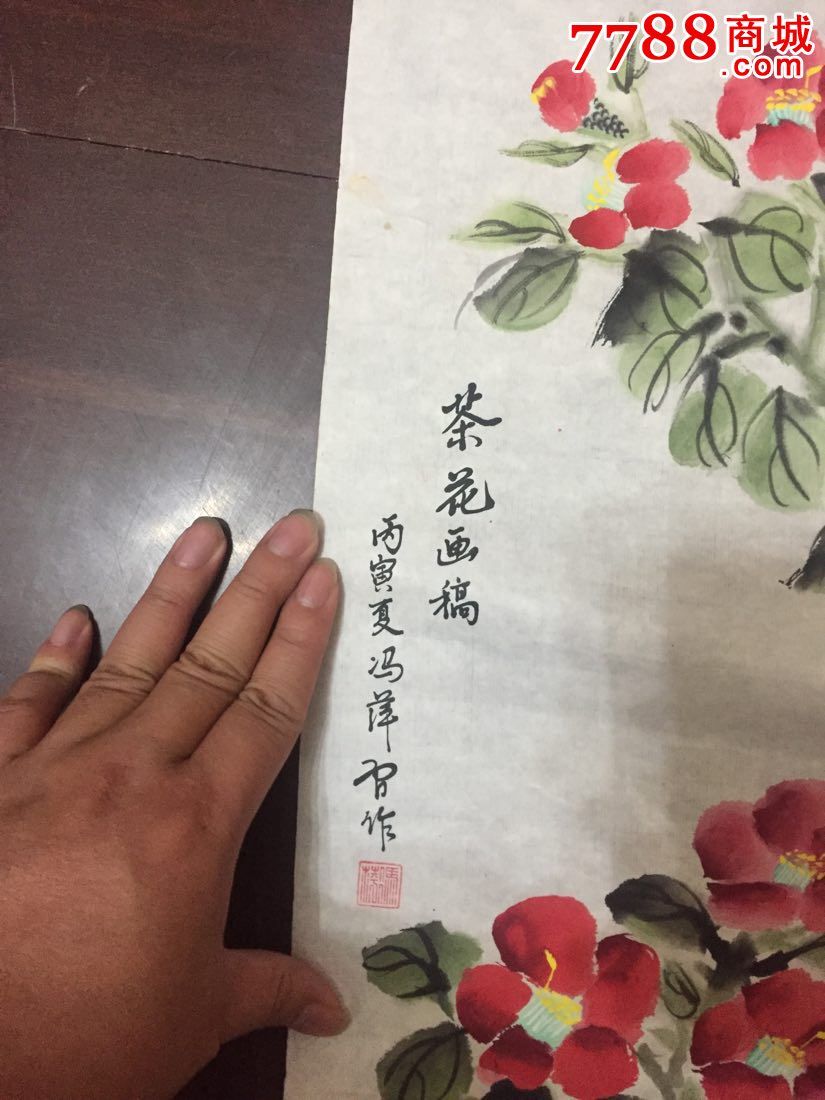 7788商城
.com
茶花画稿
丙寅夏冯萍習作